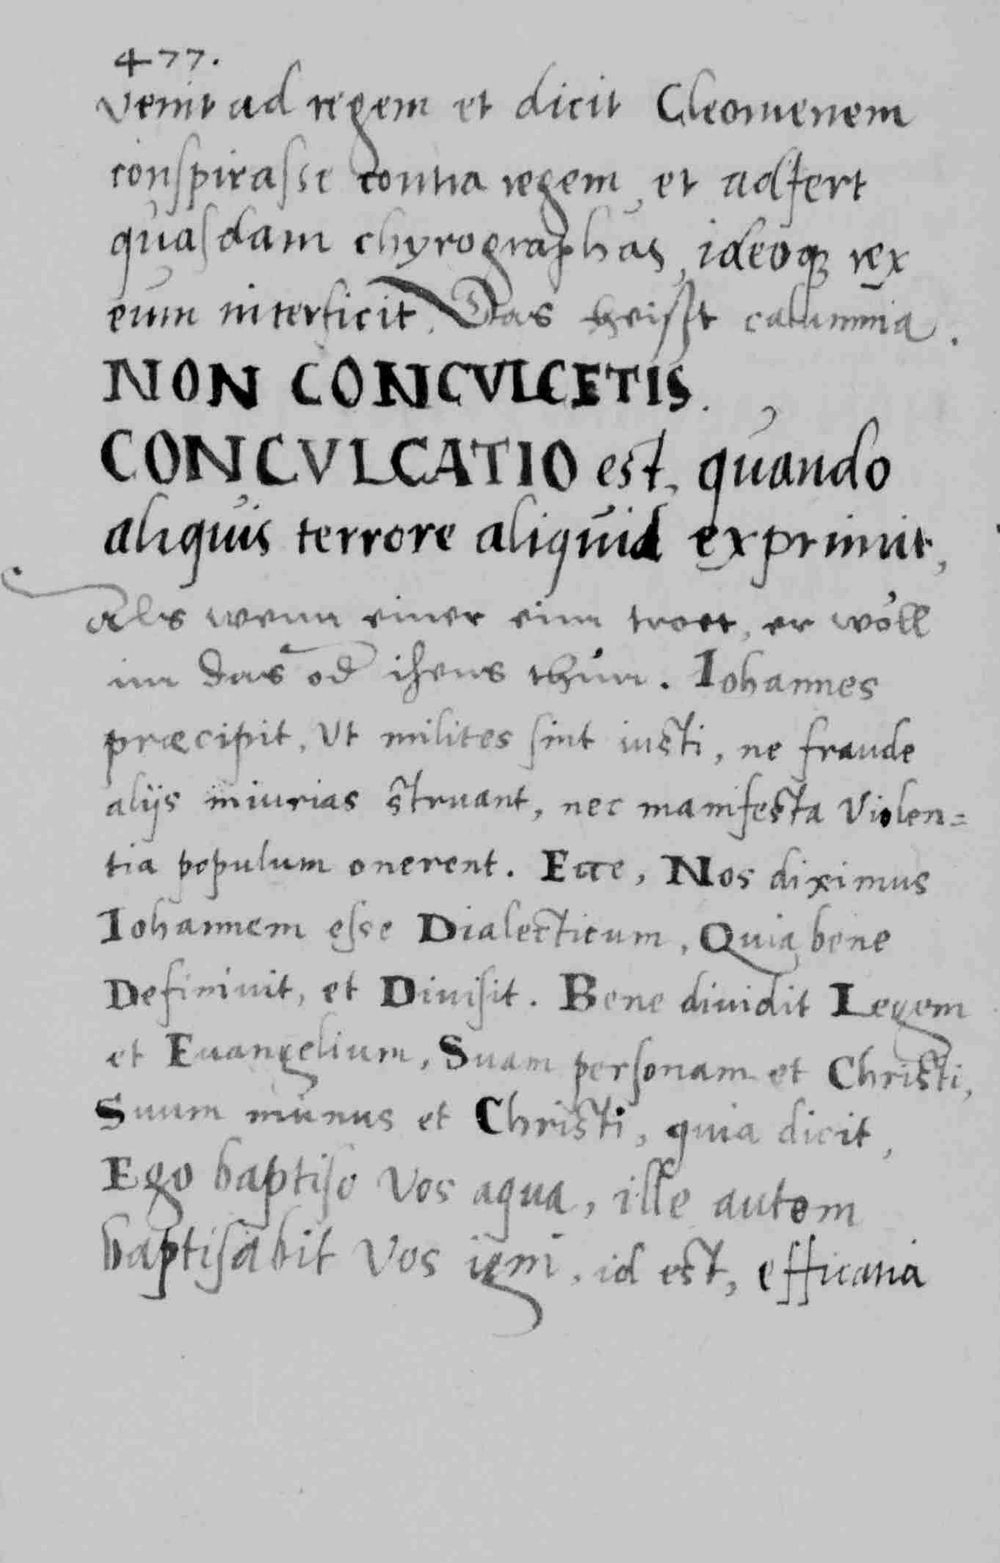 477.
venit ad regem et dicit Cleomenem
conspirasse contra regem, et adfert
quasdam chyrographas, ideoq; rex
eum interficit. Das heisst calumnia.
NON CONCVLCETIS.
CONCVLCATIO est, quando
aliquis terrore aliquid exprimit,
Als wenn einer eim troet, er wöll
im das od ihens thun. Iohannes
præcipit, Vt milites sint iusti, ne fraude
alijs iniurias struant, nec manifesta Violen=
tia populum onerent. Ecce, Nos diximus
Iohannem esse Dialecticum, Quia bene
Definiuit, et Diuisit. Bene diuidit Legem
et Euangelium, Suam personam et Christi,
Suum munus et Christi, quia dicit,
Ego baptiso Vos aqua, ille autem
baptisabit Vos igni, id est, efficatia